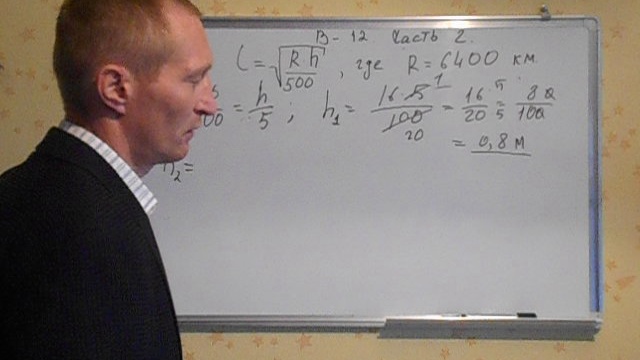 В-12. Часть 2.
l = √(Rh/500), где R = 6400 км
00 = h/5 ; h₁ = 16·5/100 = 16/20 = 80/100
1
20
5
5
= 0,8 м
h₂ =